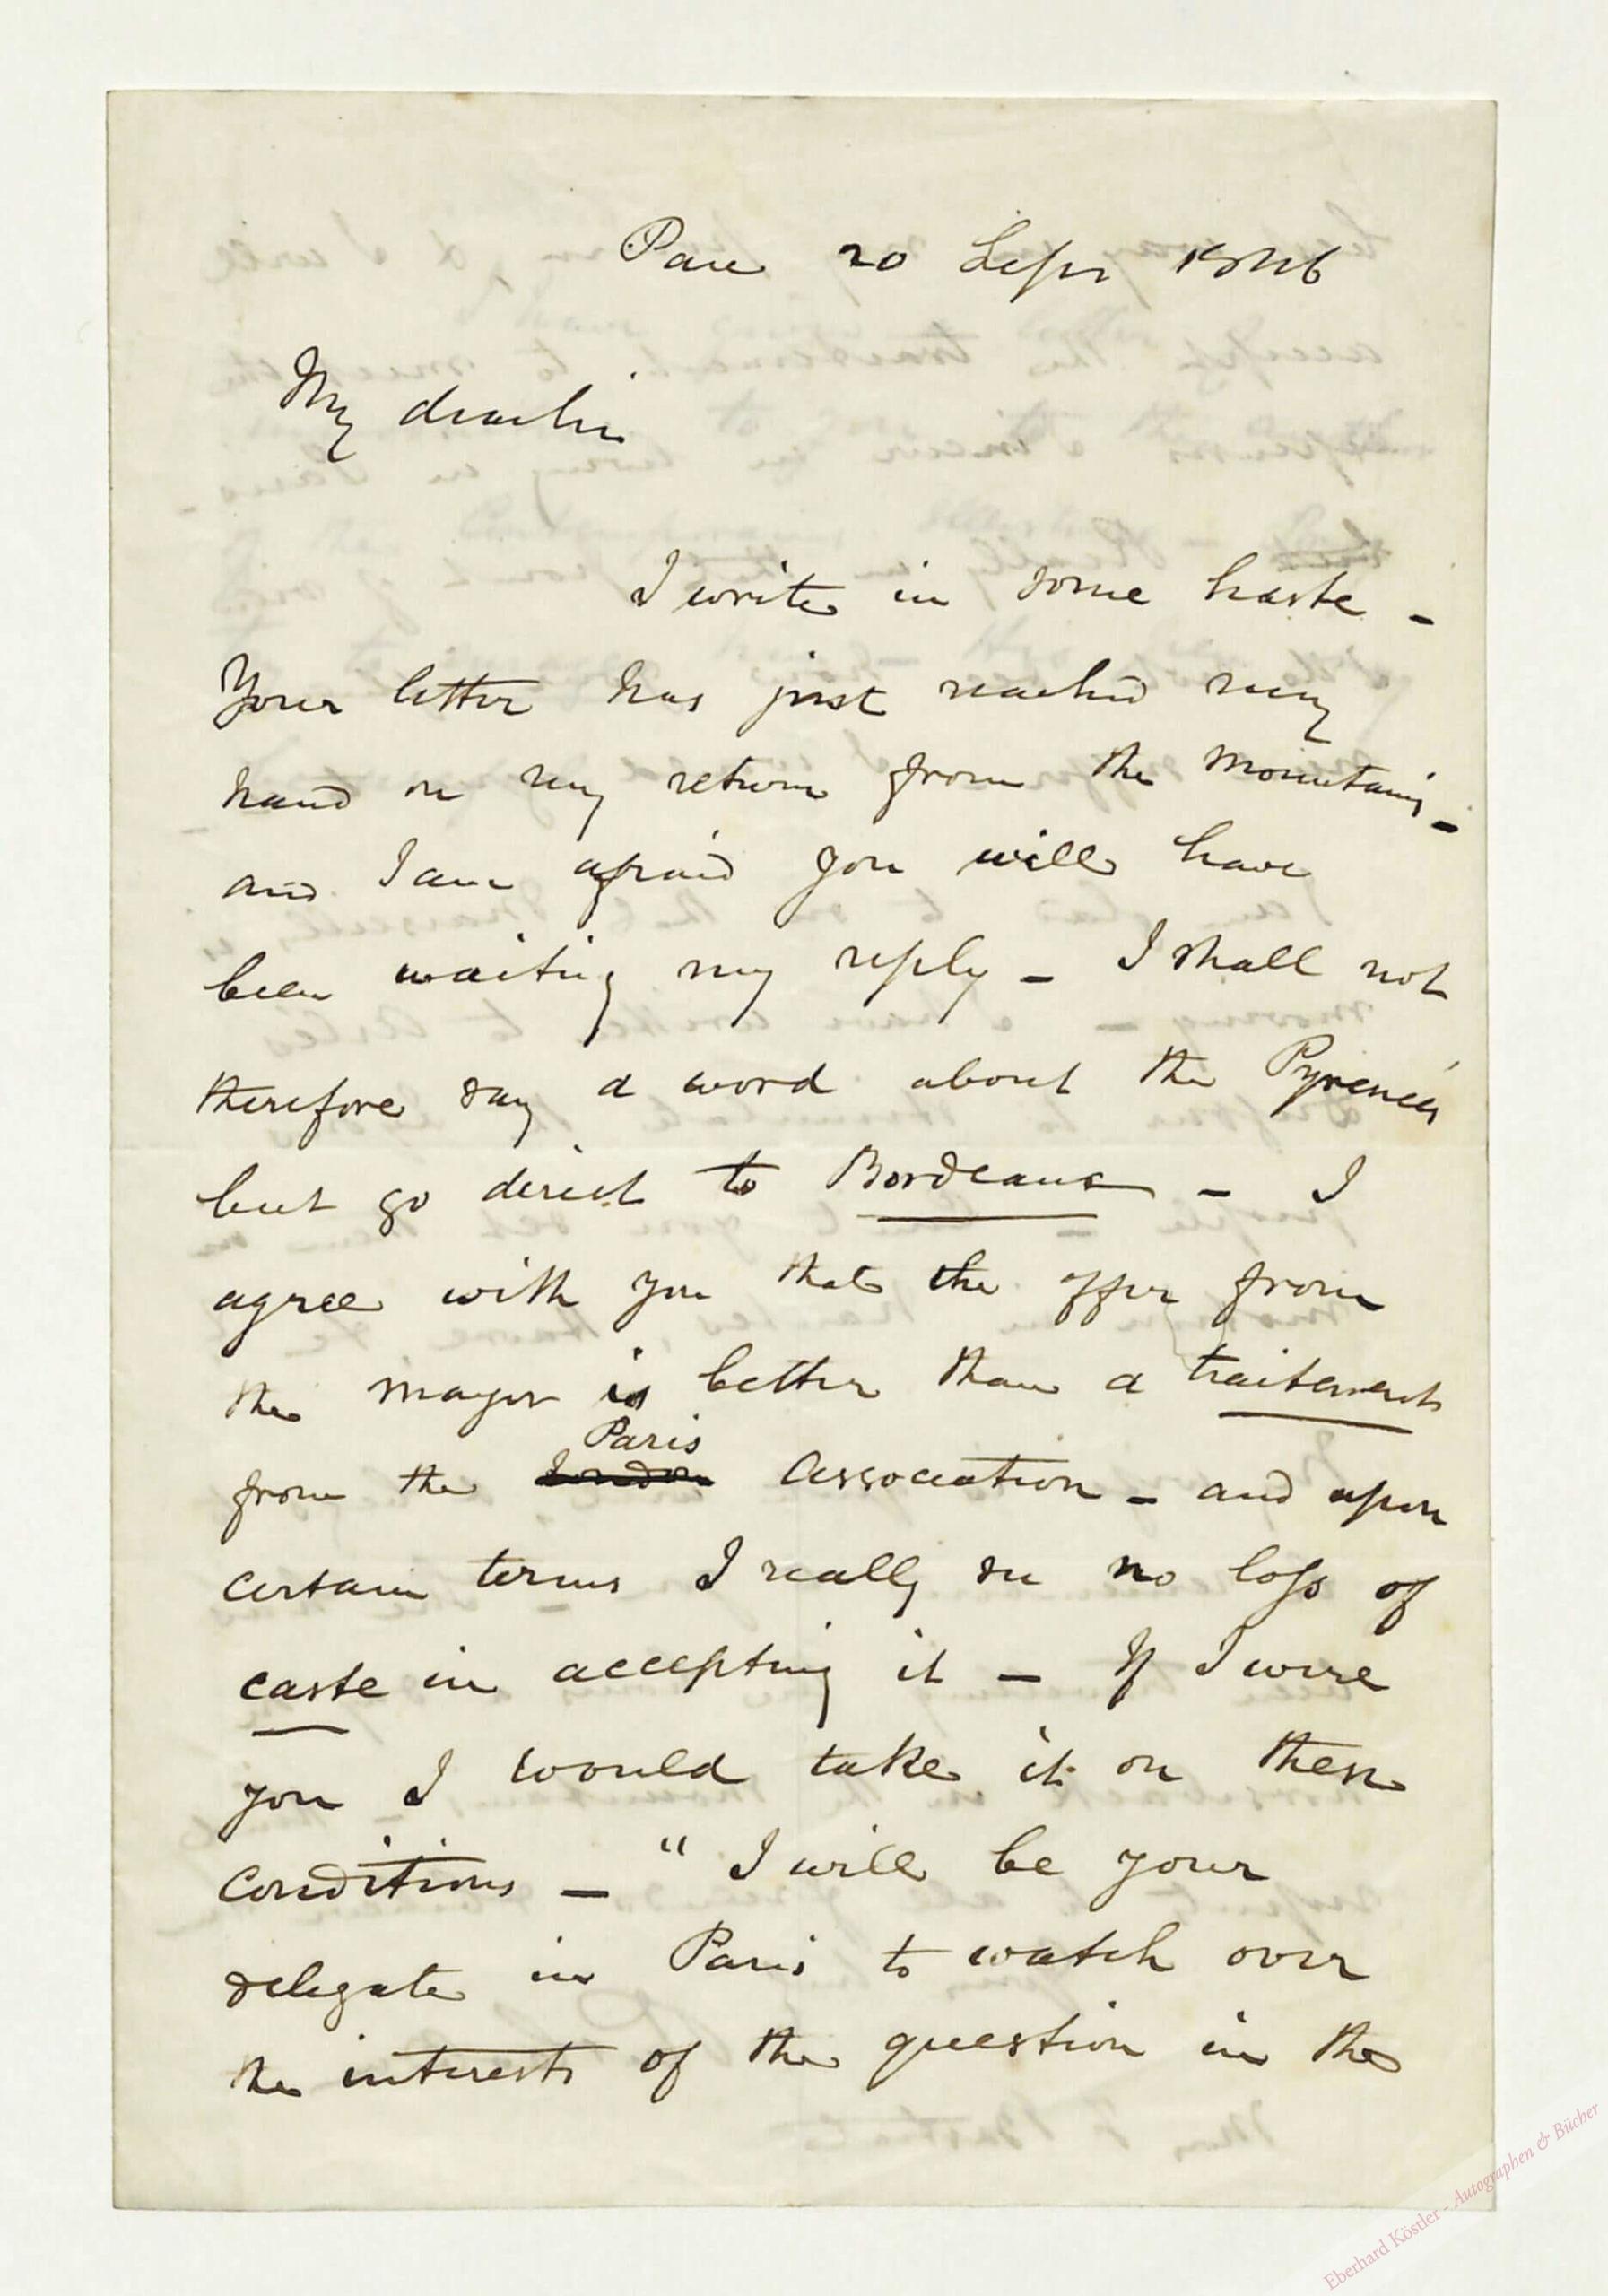 Pau 20 Sepr 1846
My dear Sir
I write in some haste -
Your letter has just reached my
hand on my return from the Mountains -
and I am afraid you will have
been waiting my reply - I shall not
therefore say a word about the Pyrenées
but go direct to Bordeaux - I
agree with you that the offer from
the Mayor is better than a traitement
Paris
from the London Association - and upon
certain terms I really see no loss of
caste in accepting it - If I were
you I would take it on these
conditions - "I will be your
delegate in Paris to watch over
the interests of the question in the
Eberhard Köstler - Autographen & Bücher